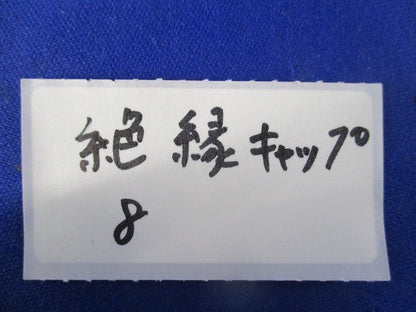 絶縁キャップ
8